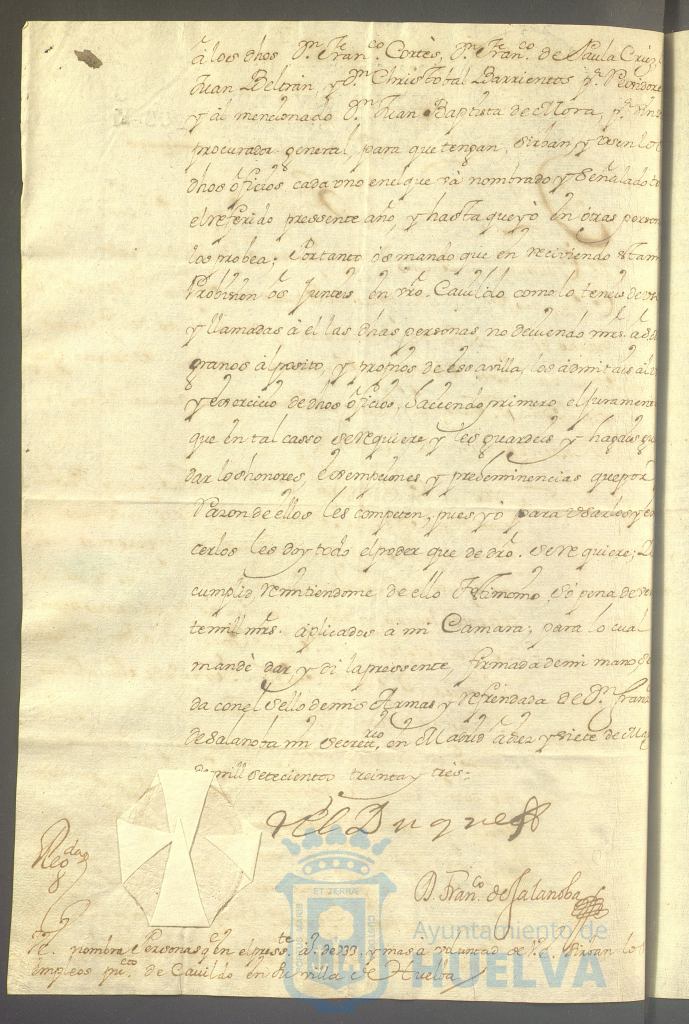 à los dhos Dn. Franco. Cortès, Dn. Franco. de Paula Cruz,
Juan Beltràn, y Dn. Christobal Barrientos pa. Rexidores
y al mencionado Dn. Juan Baptista de Mora, pa.
procurador general, para que tengan, sirban, y usen los
dhos oficios cada uno en el que và nombrado, y señalado
el referido pressente año, y hasta que yo en otras person
los probea; Por tanto òs mando que en reciviendo esta mi
Probision òs Junteis en vro. Cavildo como lo teneis de
y llamadas à èl las dhas personas no deviendo mrs. à
granos àl posito, y propios de essa villa, los admitais àl
y exsercicio de dhos oficios, haciendo primero el Jurament
que en tal casso se requiere, y les guardeis y hagais
dar los honores, exsempciones, y preheminencias que por
Razon de ellos les competen, pues yò para usarlos y
cerlos les doy todo el poder que de dro. se requiere;
cumplid, remitiendome de ello Testimonio, só pena de
te mill mrs. aplicados à mi Camara; para lo cual
mandè dar, y dì la pressente, firmada de mi mano
da con el sello de mis Armas y refrendada de Dn. Franco
de Salanoba mi secretrio. en Madrid à diez y siete de
de mill setecientos treinta y tres.
El Duque
Dn. Franco. de Salanoba
Rda.
8
Ve. nombra Personas qe. en el presste. àº. de 733. y mas a voluntad de V.e. Sirban los
empleos pucos. de Cavildo en su villa de Huelva
ET TERRAE
Ayuntamiento de
HUELVA